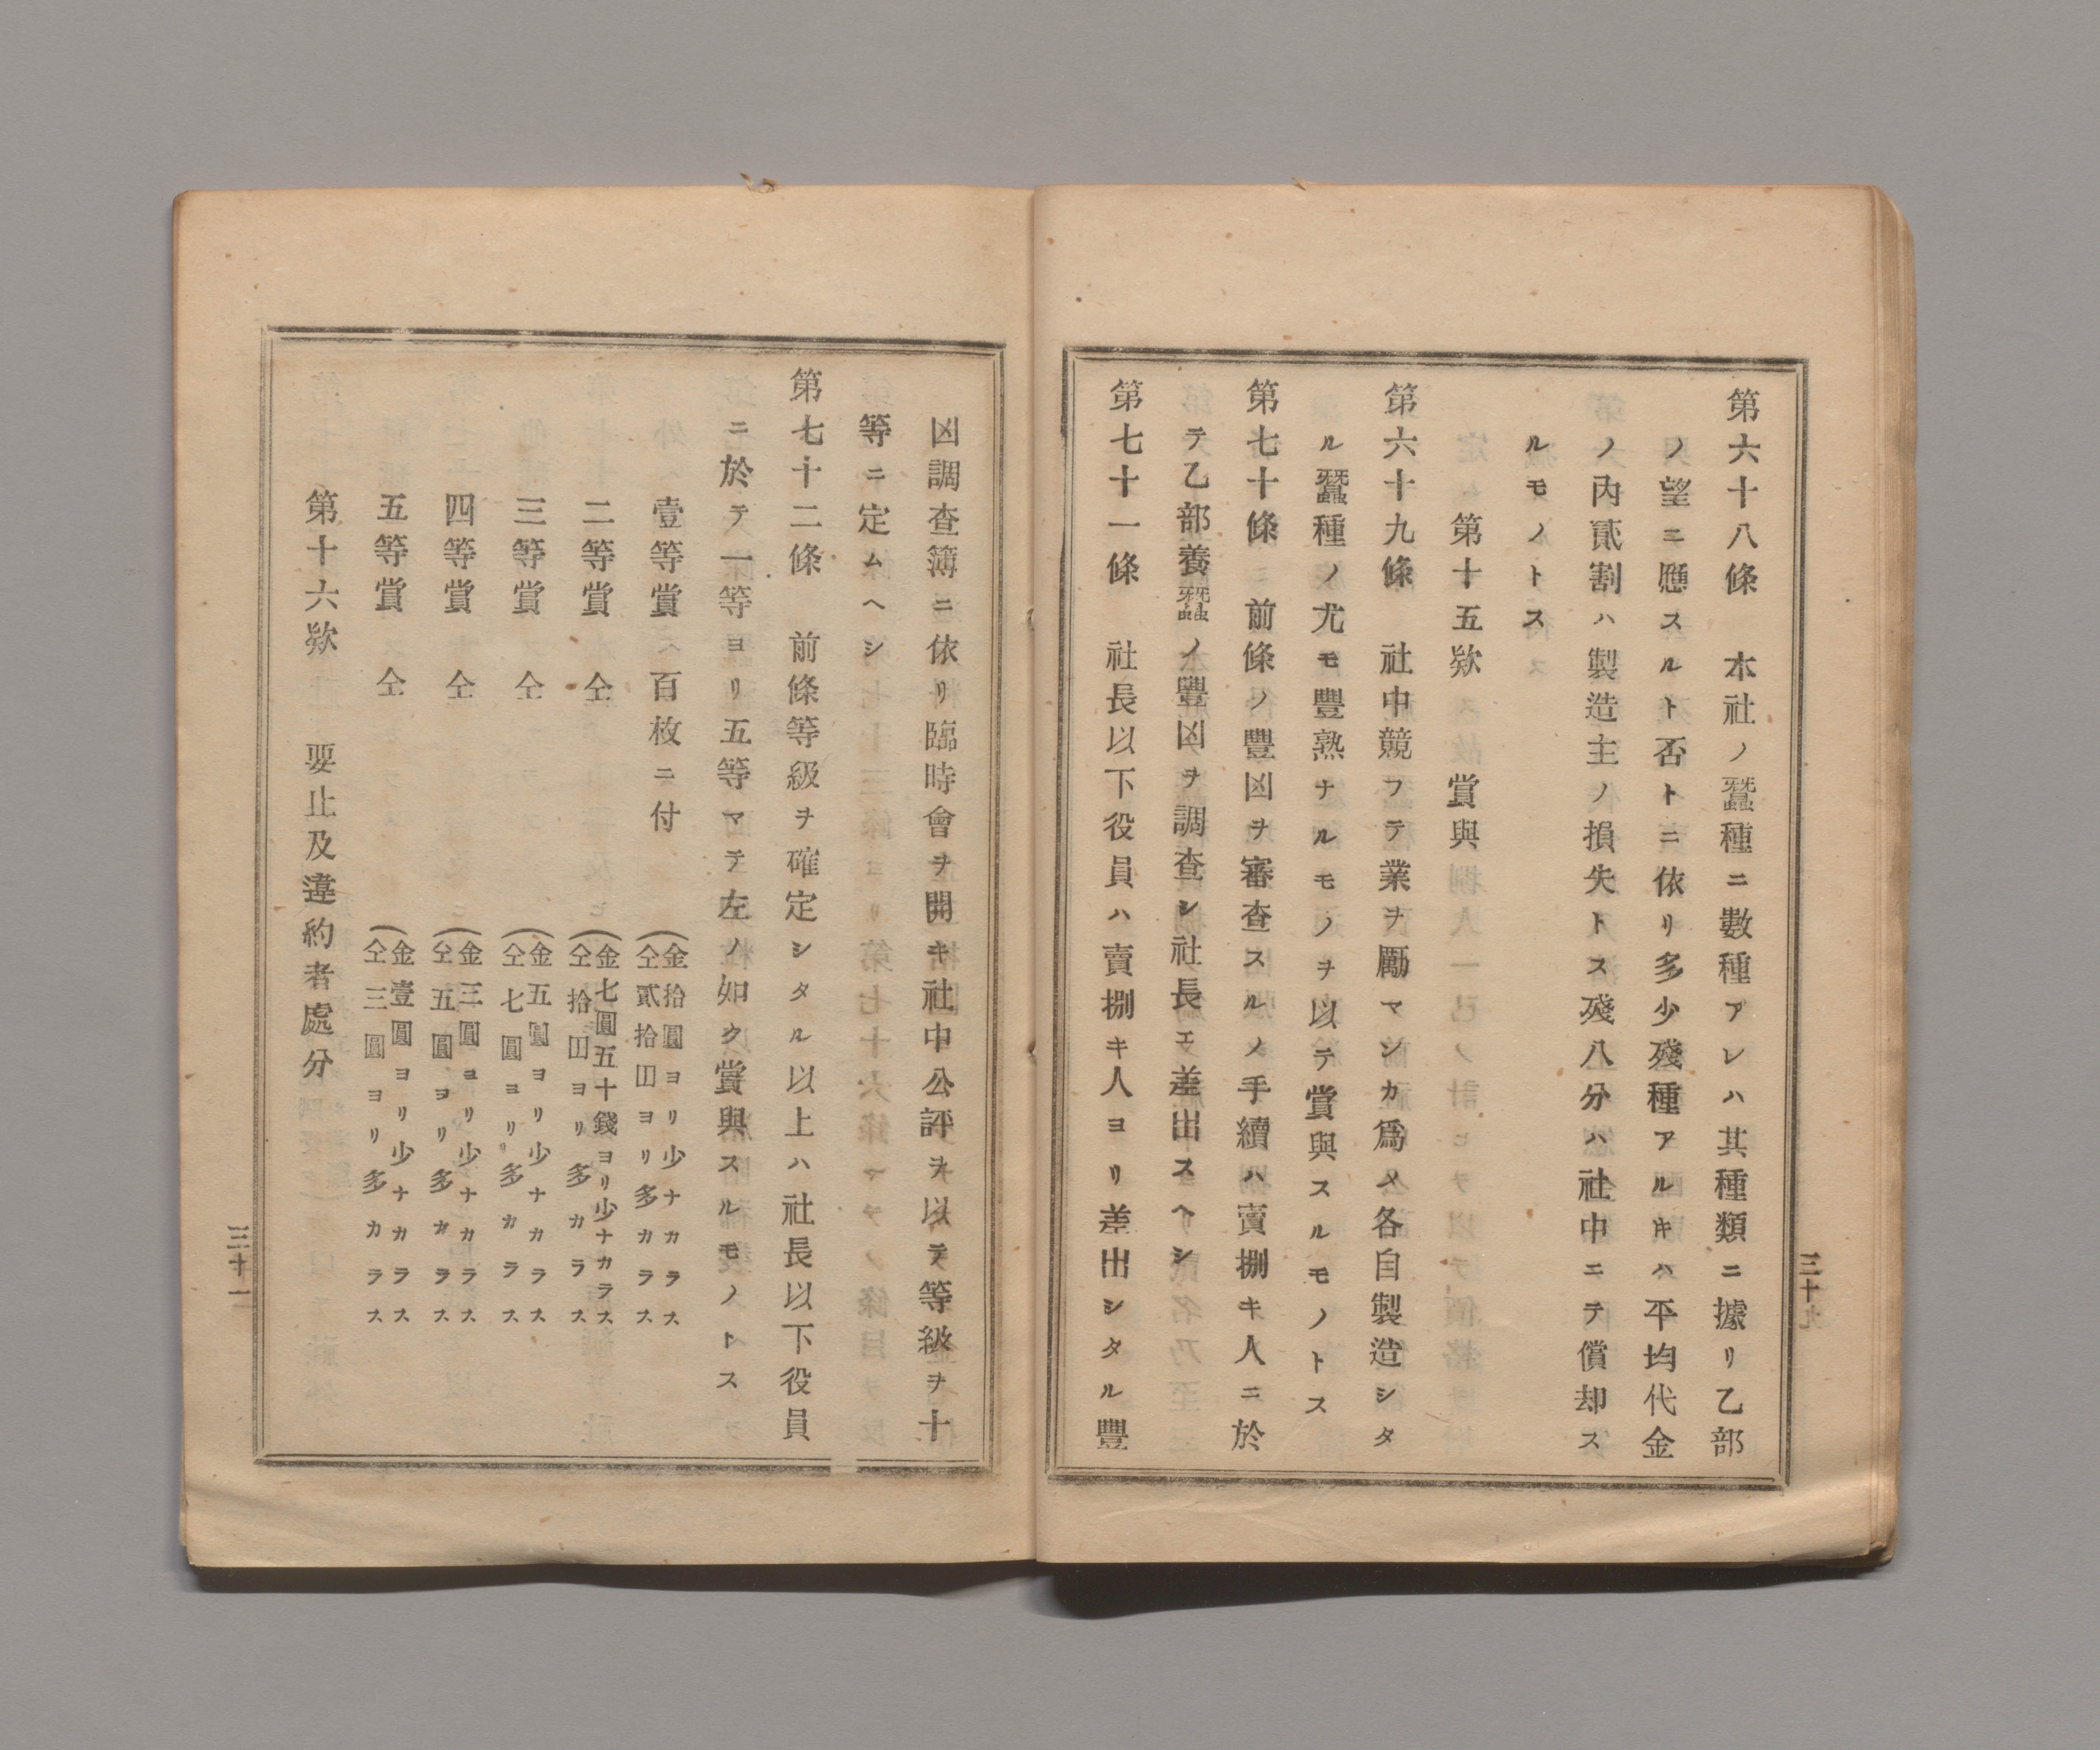 第六十八條　本社ノ蠶種ニ數種アレハ其種類ニ據リ乙部
ノ望ニ應スルト否トニ依リ多少殘種アルキハ平均代金
ノ內貳割ハ製造主ノ損失トス殘八分ハ社中ニテ償却ス
ルモノトス
第十五欵　賞與
第六十九條　社中競フテ業ヲ勵マシカ爲メ各自製造シタ
ル蠶種ノ尤モ豐熟ナルモノヲ以テ賞與スルモノトス
第七十條　前條ノ豐凶ヲ審査スルノ手續ハ賣捌キ人ニ於
テ乙部養蠶ノ豐凶ヲ調查シ社長エ差出スヘシ
第七十一條　社長以下役員ハ賣捌キ人ヨリ差出シタル豐
三十九
凶調查簿ニ依リ臨時會ヲ開キ社中公評ヲ以テ等級ヲ十
等ニ定ムヘシ
第七十二條　前條等級ヲ確定シタル以上ハ社長以下役員
ニ於テ一等ヨリ五等マテ左ノ如ク賞與スルモノトス
壹等賞　百枚ニ付　金拾圓ヨリ少ナカラス
仝貳拾囬ヨリ多カラス
二等賞　仝　金七圓五十錢ヨリ少ナカラス
仝拾囬ヨリ多カラス
三等賞　仝　金五圓ヨリ少ナカラス
仝七圓ヨリ多カラス
四等賞　仝　金三圓ヨリ少ナカラス
仝五圓ヨリ多カラス
五等賞　仝　金壹圓ヨリ少ナカラス
仝三圓ヨリ多カラス
第十六欵　要止及違約者處分
三十一